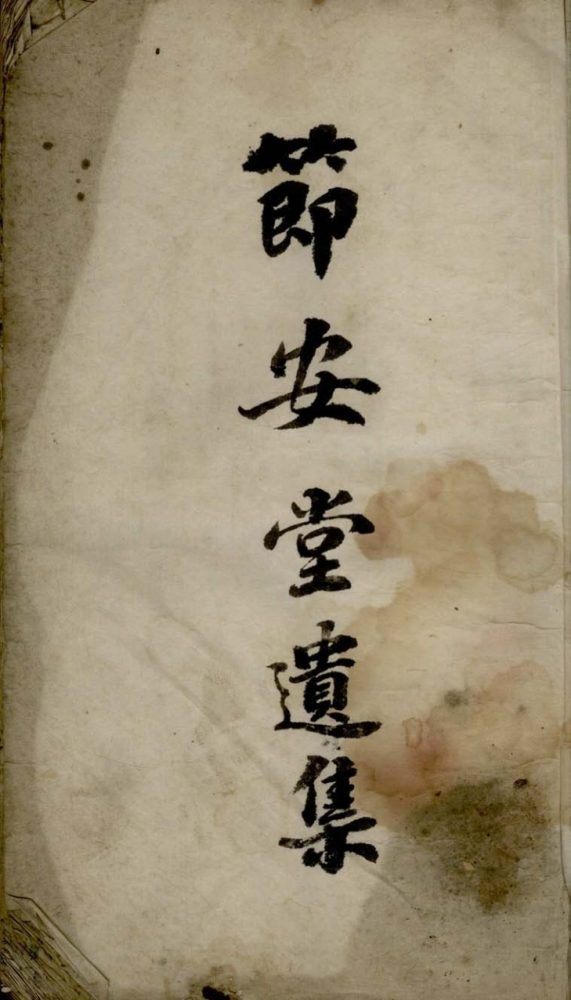 節安堂遺集